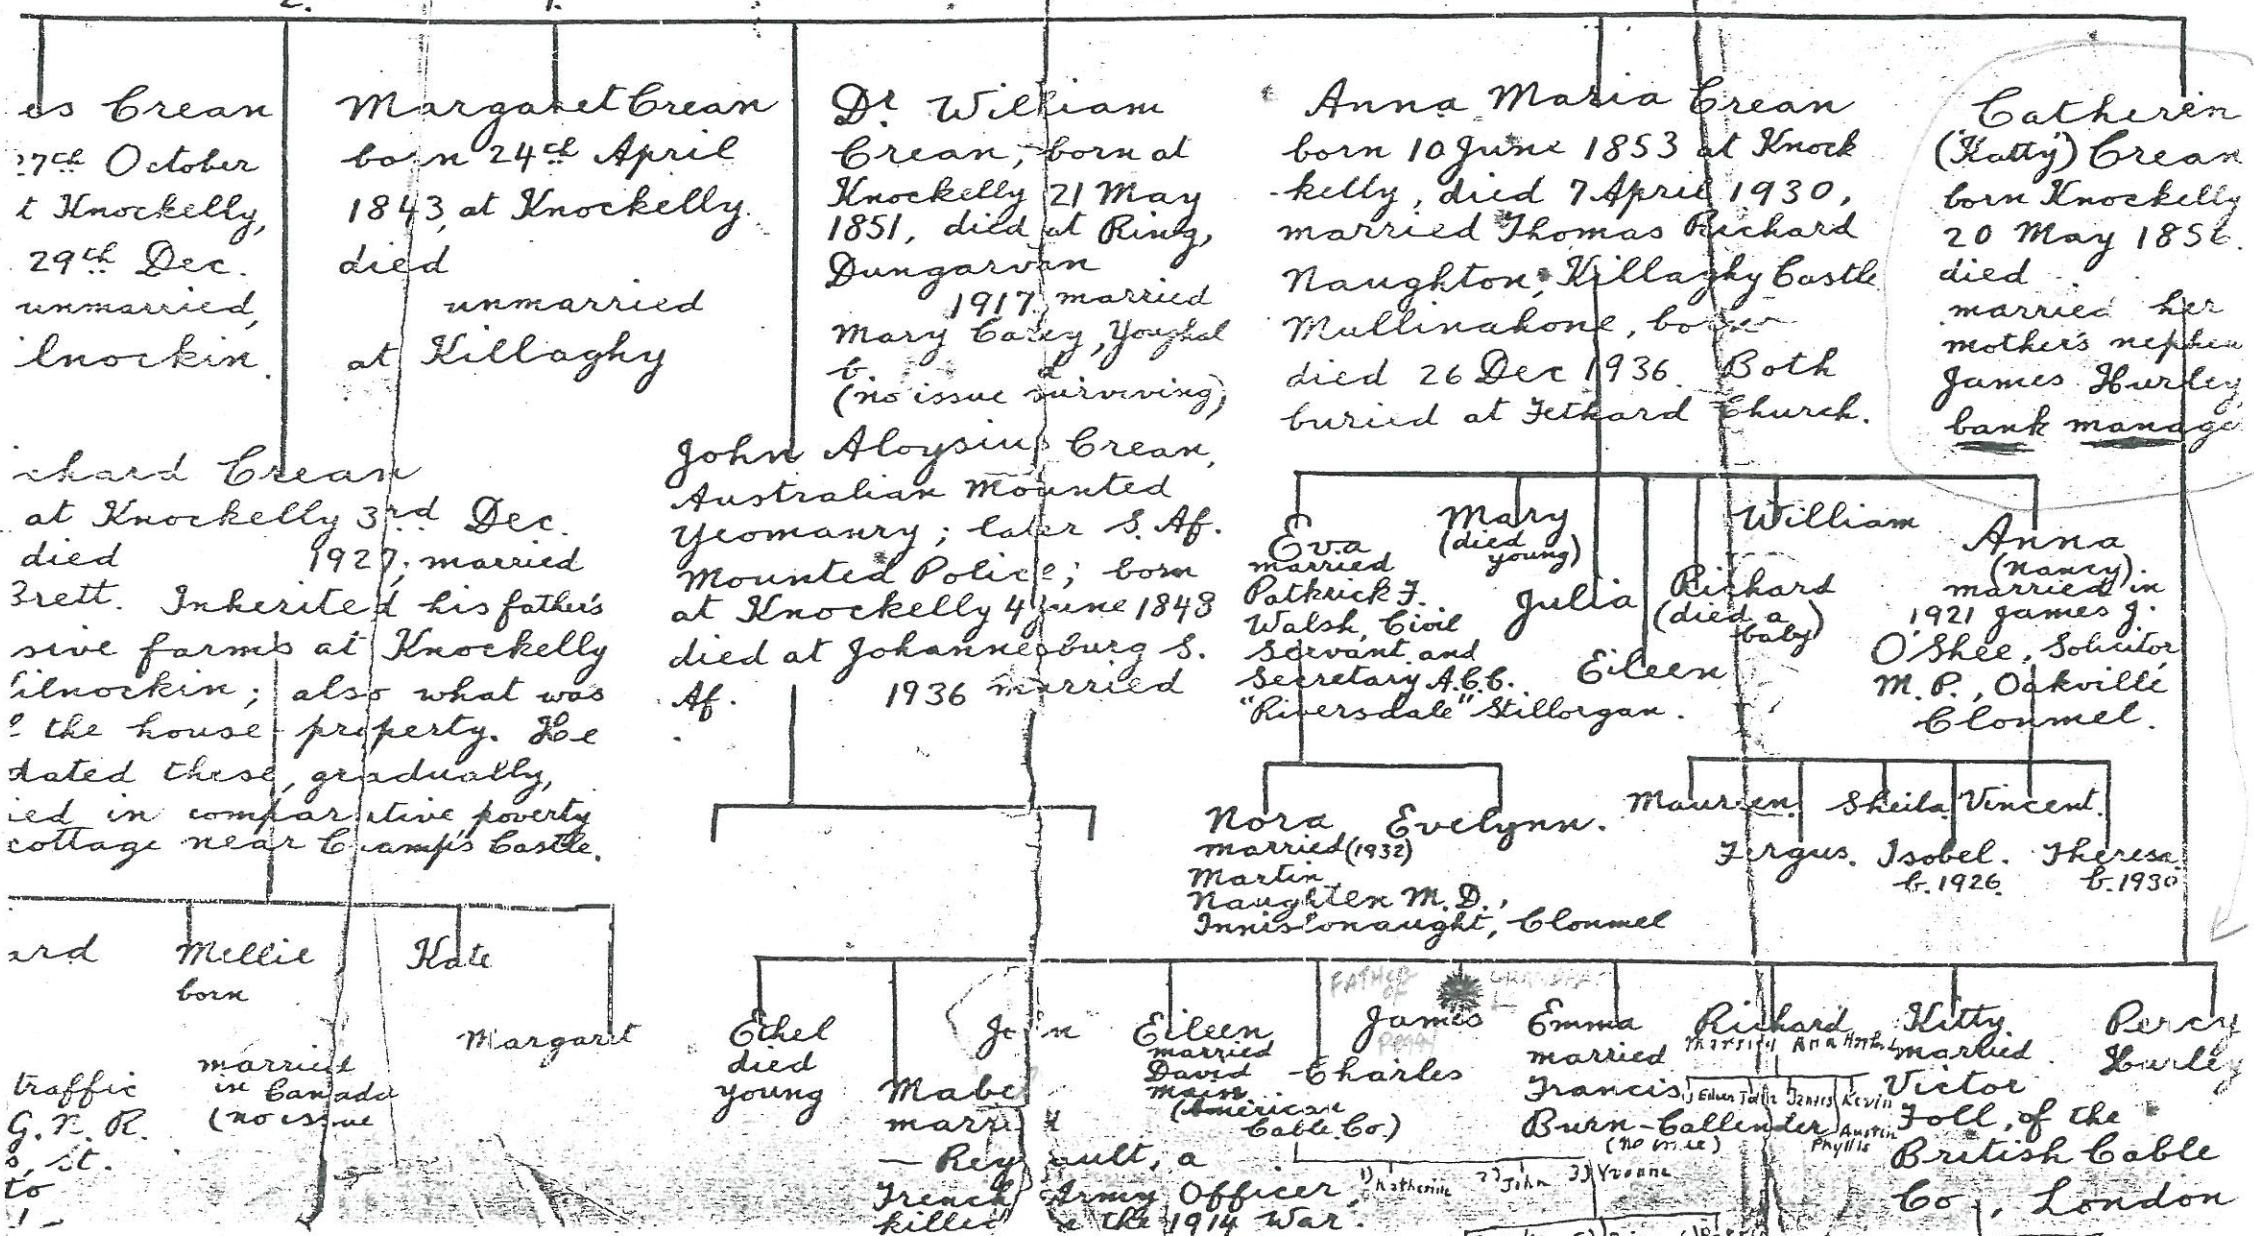 es Crean
7th October
t Knockelly,
29th Dec.
unmarried,
lnockin.
Margaret Crean
born 24th April
1843, at Knockelly.
died
unmarried
at Killaghy
Dr William
Crean, born at
Knockelly 21 May
1851, died at Ring,
Dungarvan
1917 married
Mary Casey, Youghal
b. d
(no issue surviving)
Anna Maria Crean
born 10 June 1853 at Knock
-kelly, died 7 April 1930,
married Thomas Richard
Naughton, Killaghy Castle
Mullinahone, born
died 26 Dec 1936. Both
buried at Fethard Church.
Catherin
(Katty) Crean
born Knockelly
20 May 185
died
married her
mother's nephew
James Hurley,
bank manage
chard Crean
at Knockelly 3rd Dec.
died 1927; married
Brett. Inherited his father's
sive farms at Knockelly
ilnockin; also what was
the house property. He
dated these, gradually,
ied in comparative poverty
cottage near Cramps Castle.
John Aloysius Crean,
Australian Mounted
Yeomanry; later S. Af.
Mounted Police; born
at Knockelly 4 June 1848
died at Johannesburg S.
Af. 1936 married
Eva
married
Patkrick F.
Walsh, Civil
Servant and
Secretary A.C.C.
"Riversdale" Stillorgan.
Mary
(died
young)
Julia
Eileen
Richard
(died a
baby)
William
Anna
(Nancy).
married in
1921 James J.
O'Shee, Solicitor,
M.P., Oakville
Clonmel.
Nora
married (1932)
Martin
Naughten M.D.,
Innislonaught, Clonmel
Evelynn.
Maureen
Fergus.
Sheila
Isobel.
b. 1926.
Vincent.
Theresa.
b. 1930
ard
traffic
G.N.R.
s, st.
to
Mellie
born
married
in Canada
(no issue
Kate
Margaret
Ethel
died
young
Mabel
married
— Reynault, a
French Army Officer,
killed in the 1914 War.
John
Eileen
married
David
Main
(American
Cable Co.)
Charles
FATHER
OF
James
PEGGY
1) Katherine 2) John 3) Yvonne
Emma
married
Francis
Burn-Callender
(no issue)
Richard
married Ana
Eileen John James Kevin
Austin
Phyllis
Kitty
married
Victor
Foll, of the
British Cable
Co., London
Percy
Hurley